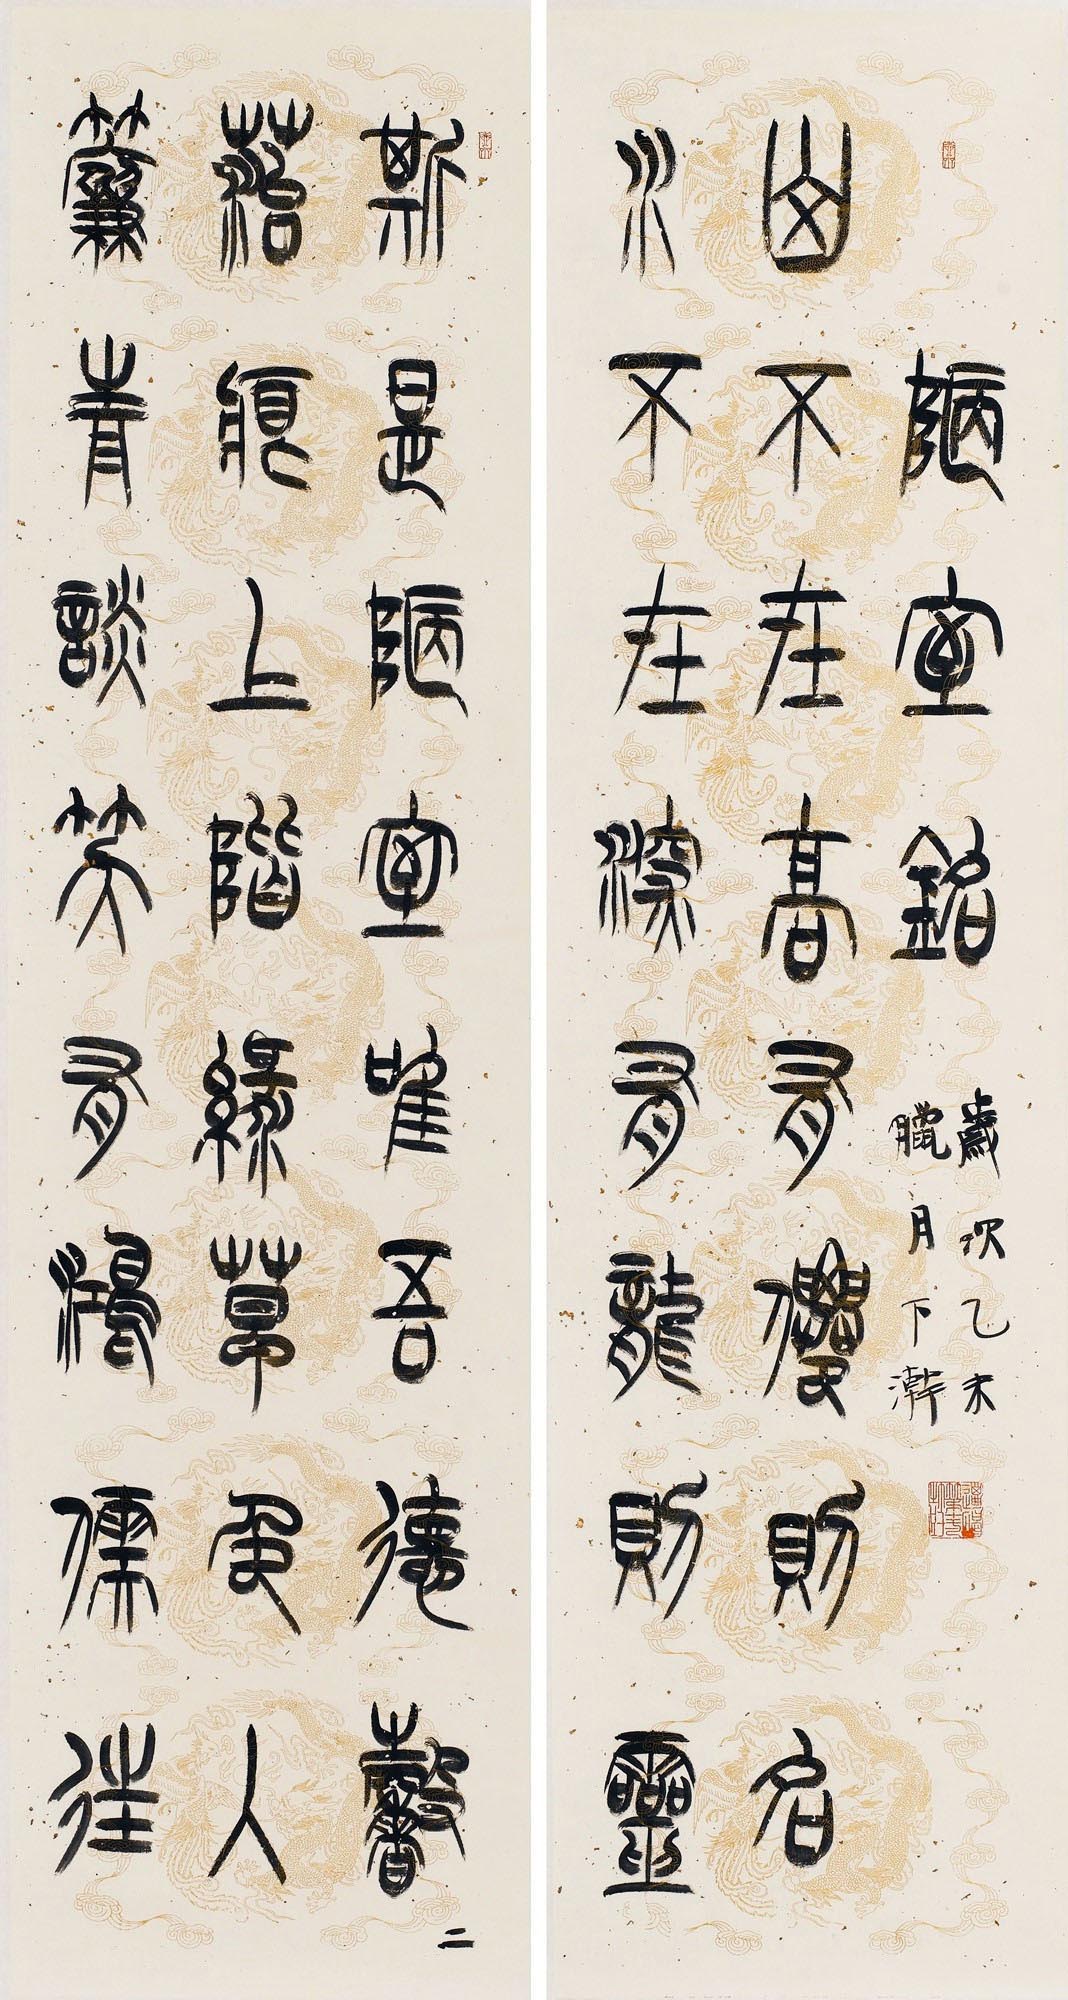 陋室銘
歲次乙未
臘月下澣
山不在高有僊則名
水不在深有龍則靈
斯是陋室唯吾德馨
二
苔痕上階綠草色入
簾青談笑有鴻儒往